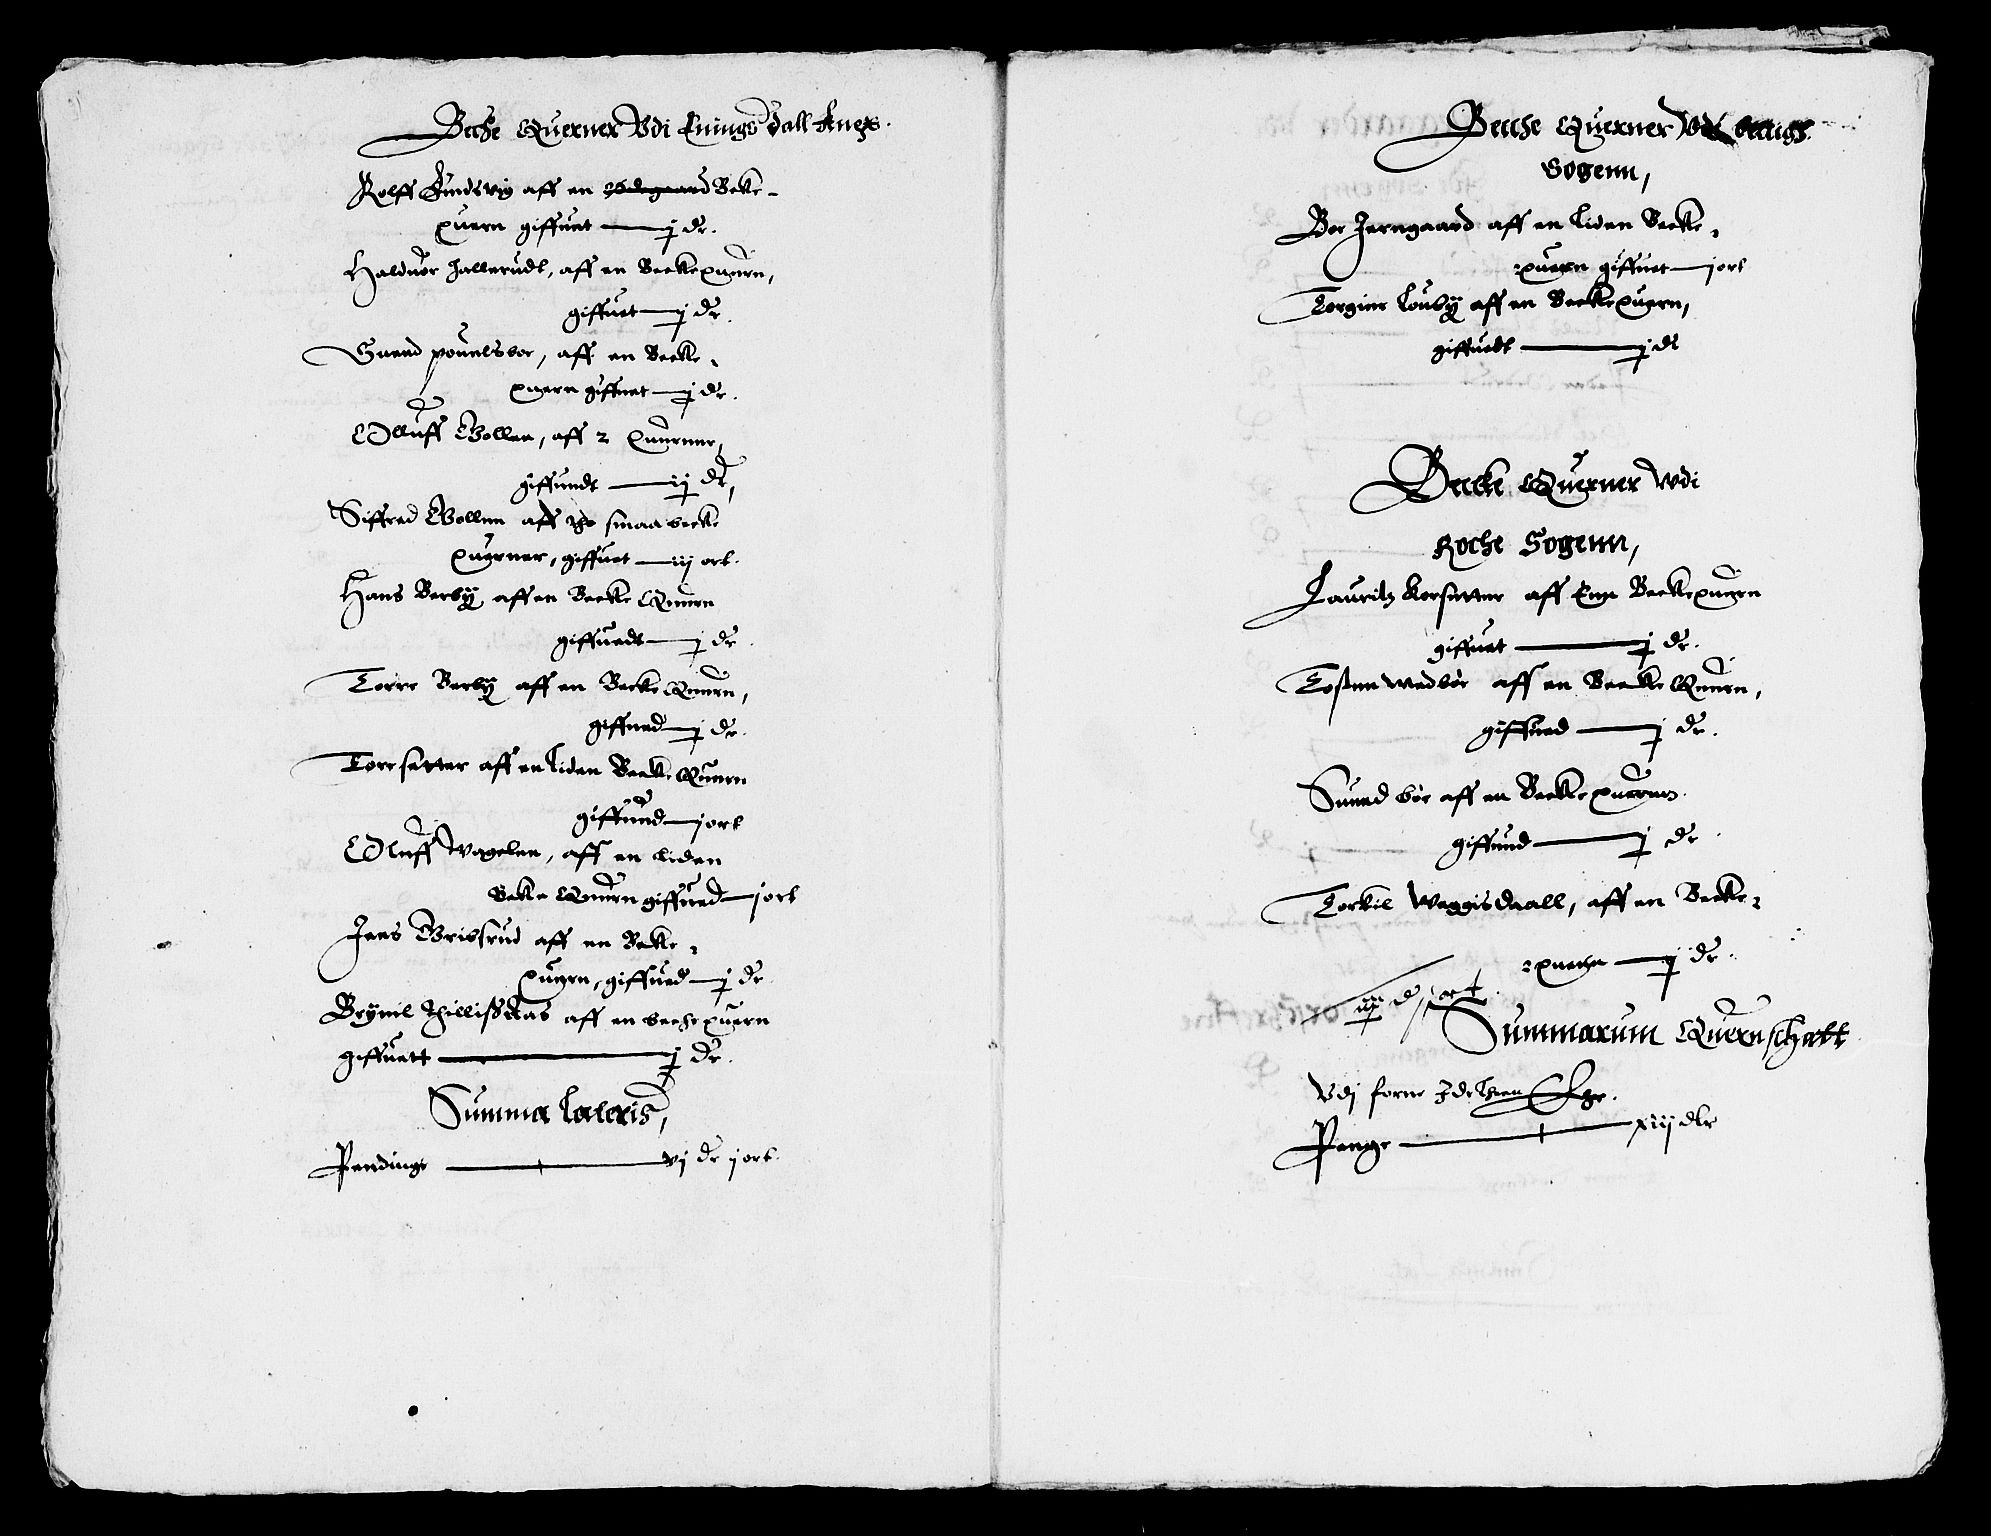 Becke Querner Vdi Enings dall
Rolff aff en Beke-
quern giffuet — j dr.
Halduor Jallerudt, aff en Beckequern,
giffuet — j dr.
Suend pouelsboe, aff en Becke-
quern giffuet — j dr.
Olluff Wollen, aff 2 querner,
giffuindt — ij dr,
Siffred Wollenn aff tho smaa becke
querner, giffuet — iij ort.
Hans Berbÿ aff en Becke Quern
giffuedt — j dr
Torre Berbÿ aff en Becke Quern,
giffued — j dr.
Tore setter aff en liden Becke Quern
giffuind — j ort
Oluff Wagelen, aff en liden
Becke Quern giffued — j ort
Jens Gribsrud aff en Becke-
quern, giffued — j dr
Brÿnil aff en beche quern
giffuett — j dr.
Summa lateris,
Pendinge — vj dr j ort.
Becke Querner Vdi
Sogenn,
Boe Jerngaard aff en liden Becke-
quern giffuet — j ort
Torgier Loubÿ aff en Becke quern,
giffuedt — j dr
Becke Querner Vdi
Roche Sogenn,
Lauritz Korsetter aff Enn Becke quern
giffuet — j dr.
Tosten Wedbøe aff en Becke Quern,
giffued — j dr.
Suend bøe aff en Becke quernn.
giffuind — j dr
Torkil Weggisdaall, aff en Becke-
quern — j dr.
iiij d j ort
Summarum Quernschatt
Vdj forne Jde
Penge — xiij dlr